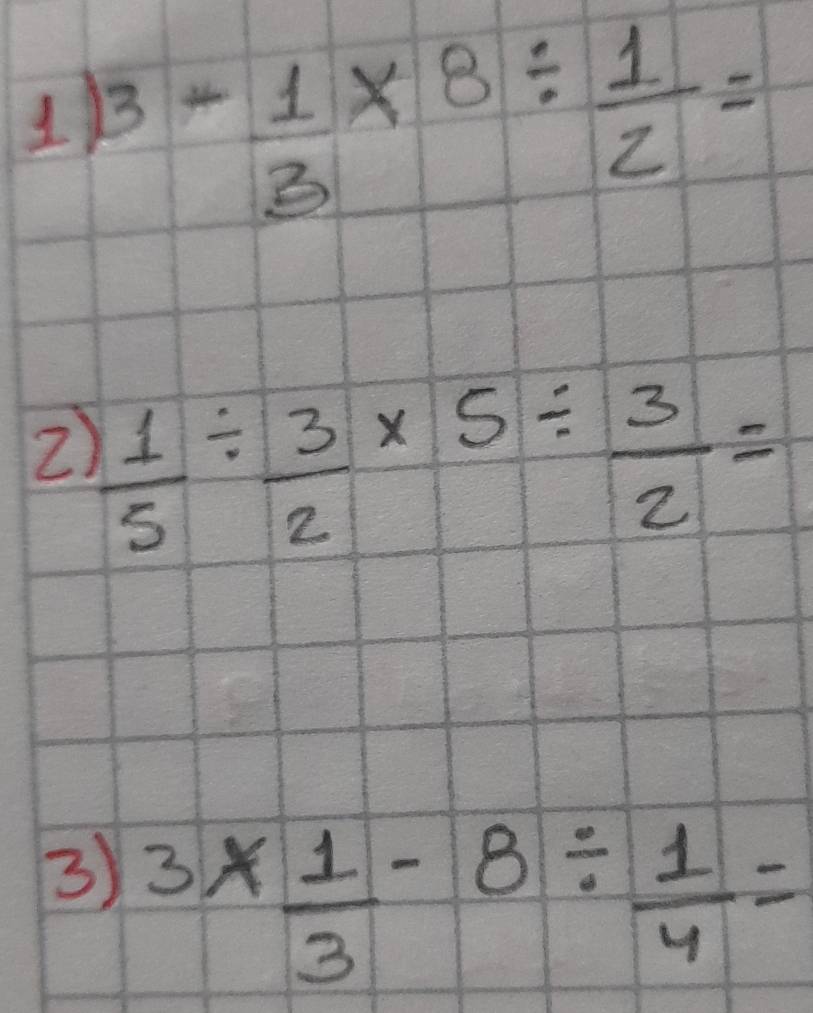 1) 3 - 1/3 × 8 ÷ 1/2 =
2) 1/5 ÷ 3/2 × 5 ÷ 3/2 =
3) 3 × 1/3 - 8 ÷ 1/4 =